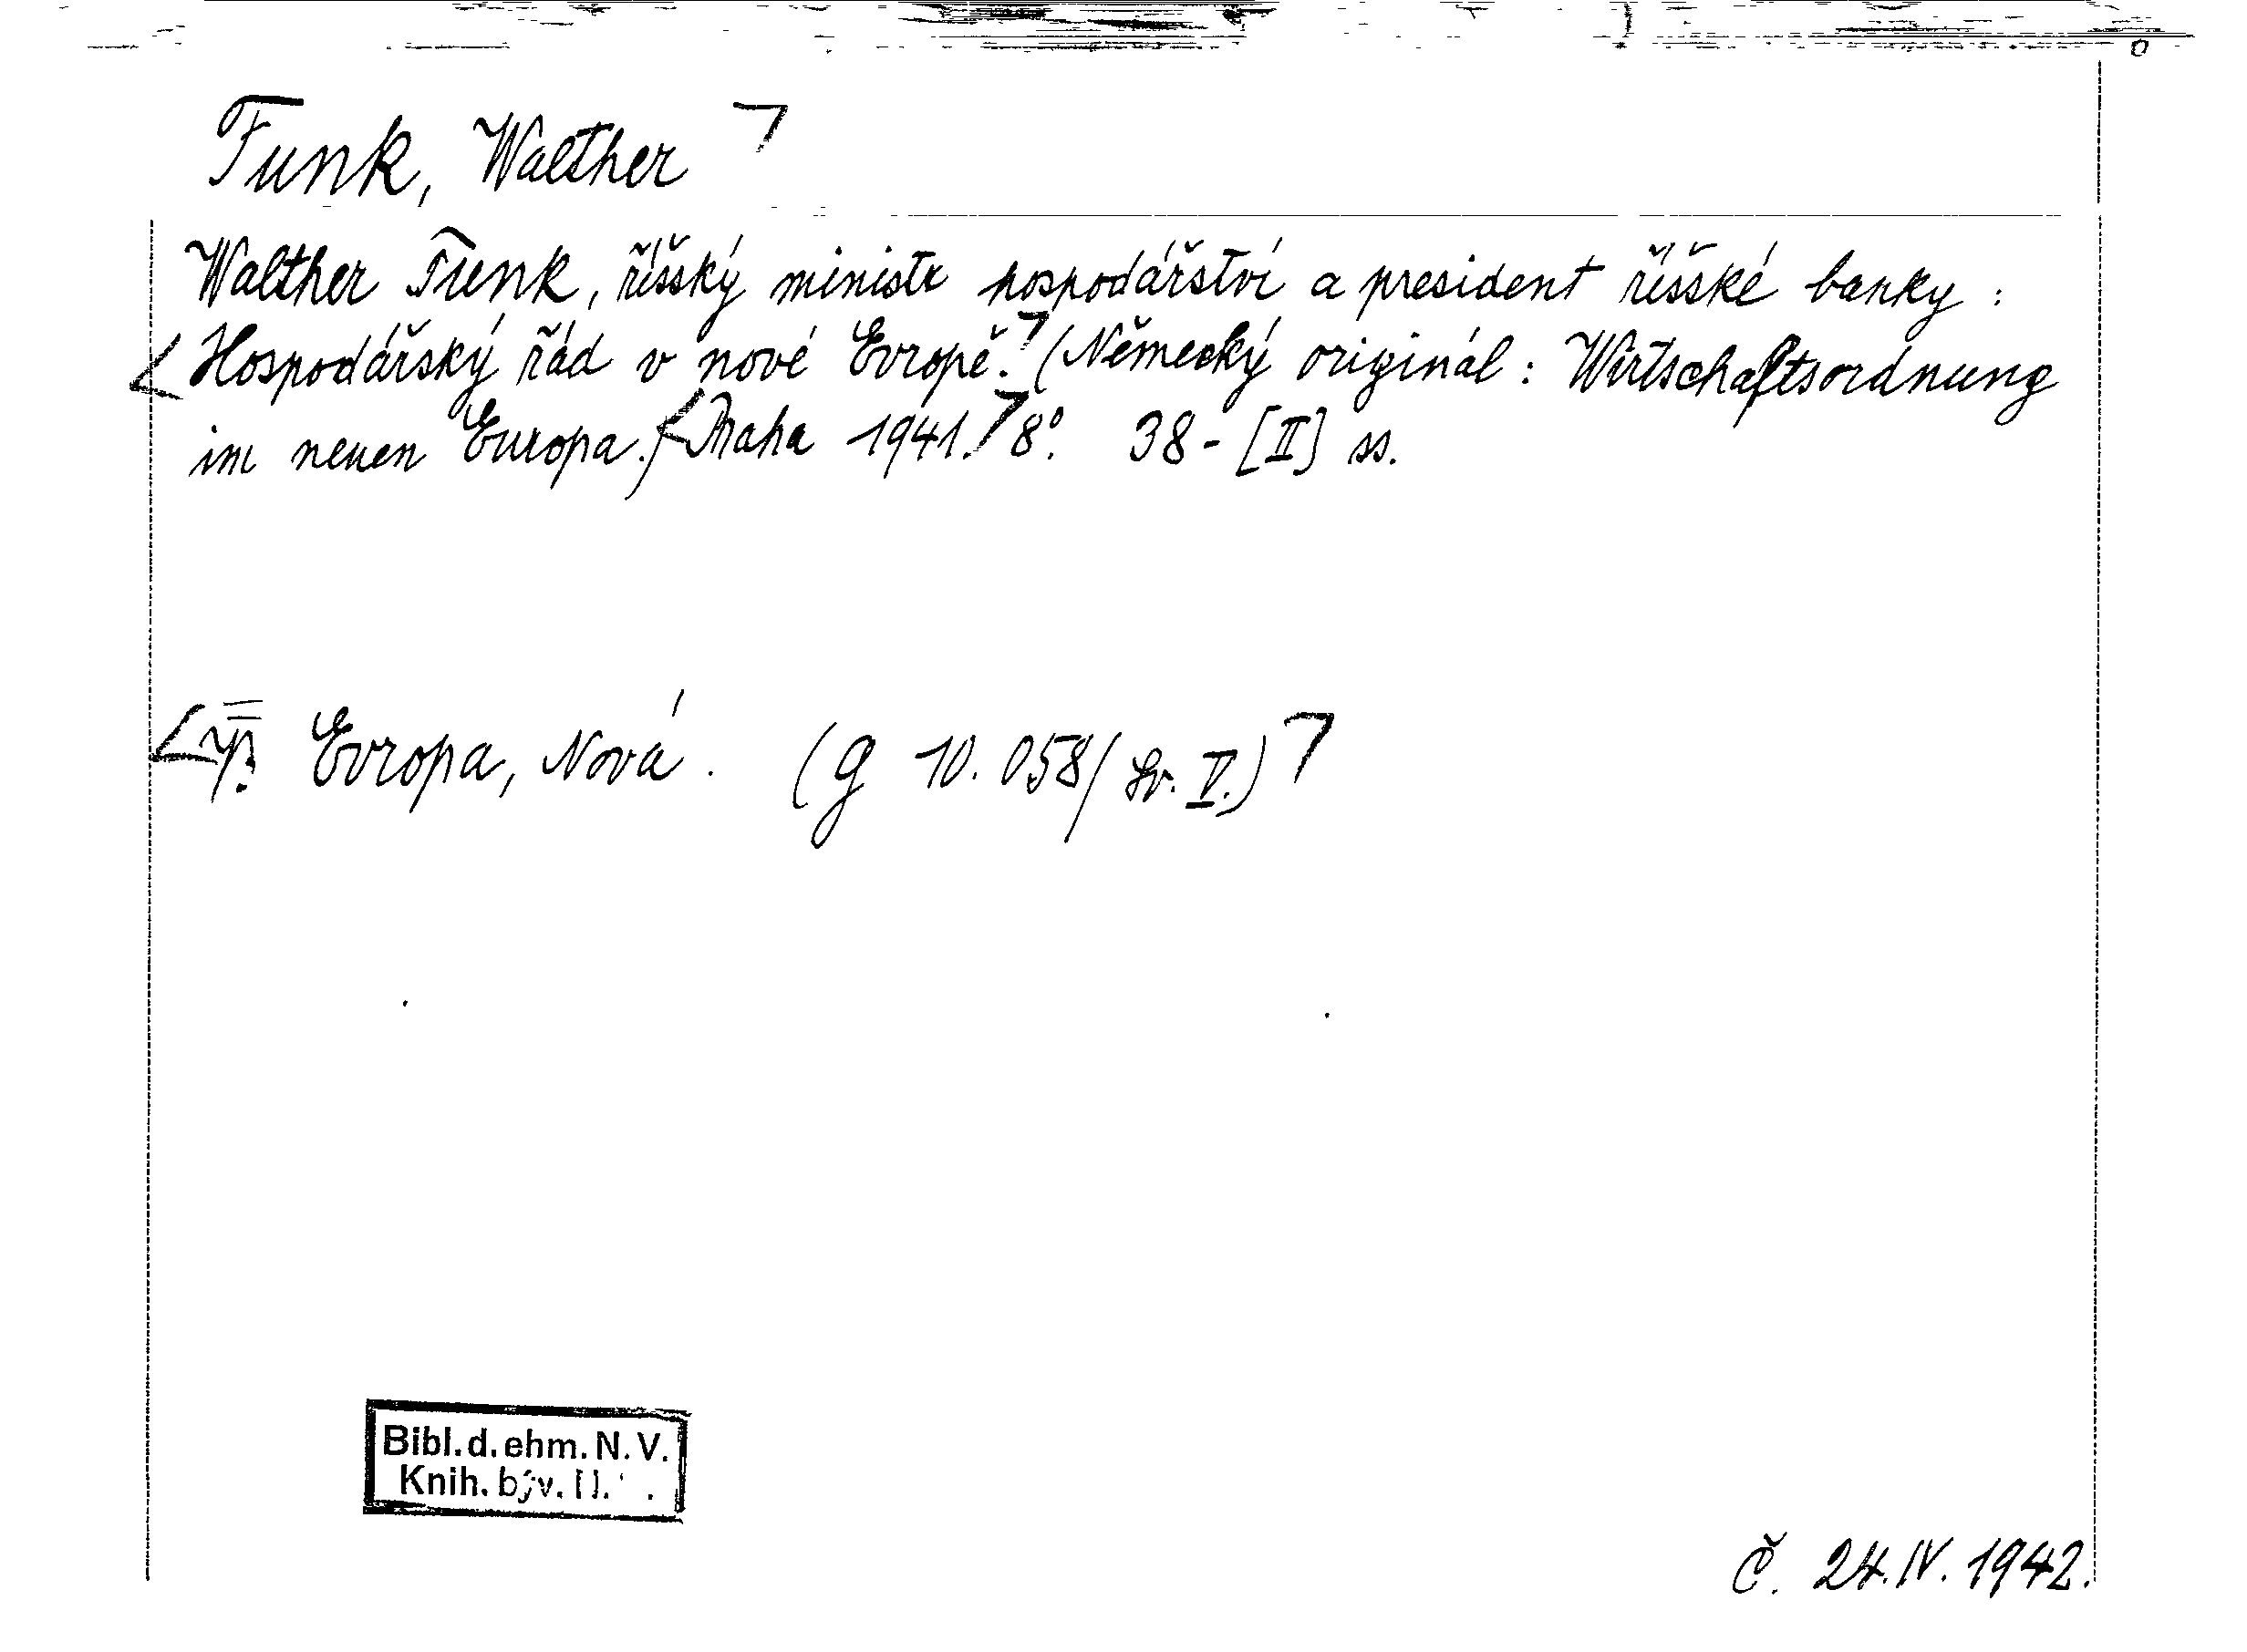 Funk, Walther
Walther Funk, říšský ministr hospodářství a president říšské banky :
Hospodářský řád v nové Evropě. (Německý originál : Wirtschaftsordnung
im neuen Europa.) Praha 1941. 8°. 38 - [II] ss.
Evropa, Nová. (g 10.058/ Sv. V.)
Bibl. d. ehm. N. V.
Knih. býv.
Č. 24. IV. 1942.